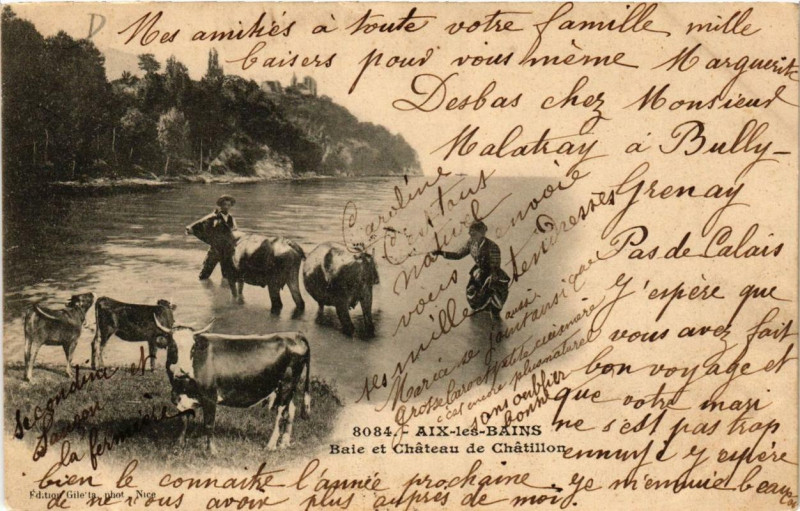 Mes amitiés à toute votre famille mille
baisers pour vous même Marguerite
Desbas chez Monsieur
Malatray à Bully-
Grenay
Pas de Calais
J'espère que
vous avez fait
bon voyage et
que votre mari
ne s'est pas trop
ennuyé j'espère
bien le connaitre l'année prochaine. je m'ennuie beau
de ne vous avoir plus auprès de moi.
Caroline
C'est tout
naturel
vous envoie
ses mille tendresses
Maria se joint ainsi que
aussi
grosse Caro et petite cuisinière
c'est encore plus naturel
sans oublier
bonne
Secondin et
la fermière
8084. - AIX-les-BAINS
Baie et Château de Châtillon
Edition Giletta, phot., Nice